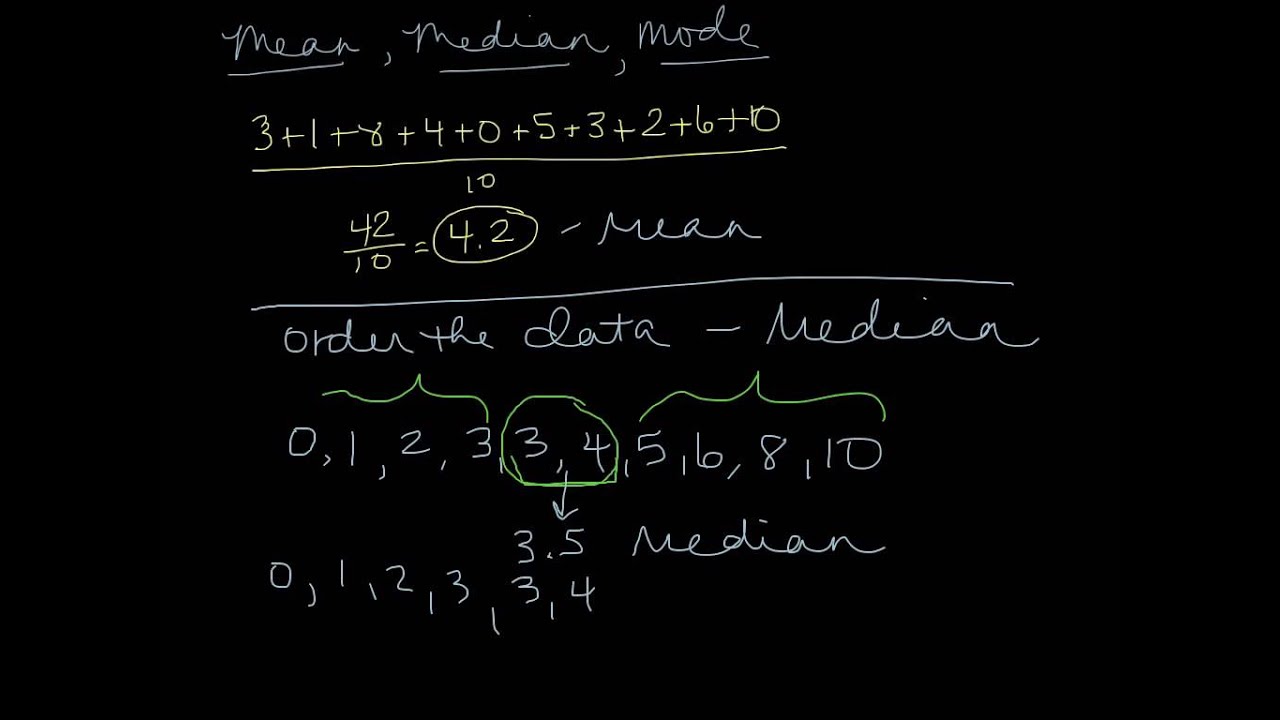 Mean, Median, Mode
3+1+8+4+0+5+3+2+6+10
10
42
10 = 4.2 - Mean
Order the data - Median
0, 1, 2, 3, 3, 4, 5, 6, 8, 10
3.5 Median
0, 1, 2, 3, 3, 4